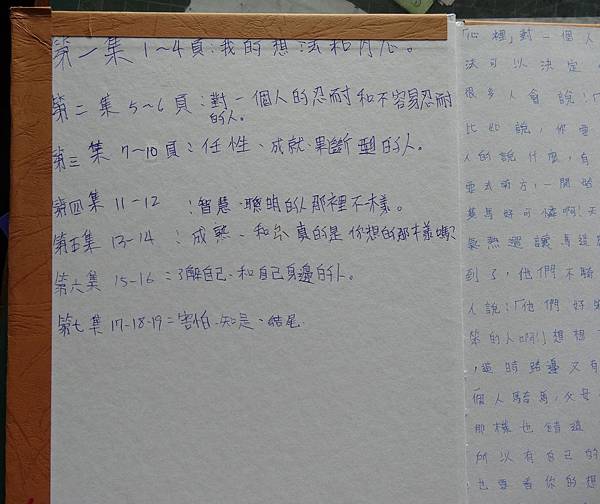 第一集 1~4頁:我的想法和內心。
第二集 5~6頁:對一個人的忍耐和不容易忍耐
的人。
第三集 7~10頁:任性、成就、果斷型的人。
第四集 11-12 :智慧、聰明的人那裡不樣。
第五集 13-14 :成熟、和 真的是你想的那樣嗎?
第六集 15-16 :了解自己、和自己身邊的人。
第七集 17-18-19=害怕、知足、結尾.
「心裡」對一個人
法可以決定
很多人會說:「
比如說,你要
人的說什麼,有
,一開始
好可憐啊!天
氣熱還讓馬
到了,他們不騎
人說:「他們好笨
笨的人啊!」想想
,這時路邊又有
個人騎馬,父母
那樣也錯這
所以有自己的
也要看你的想